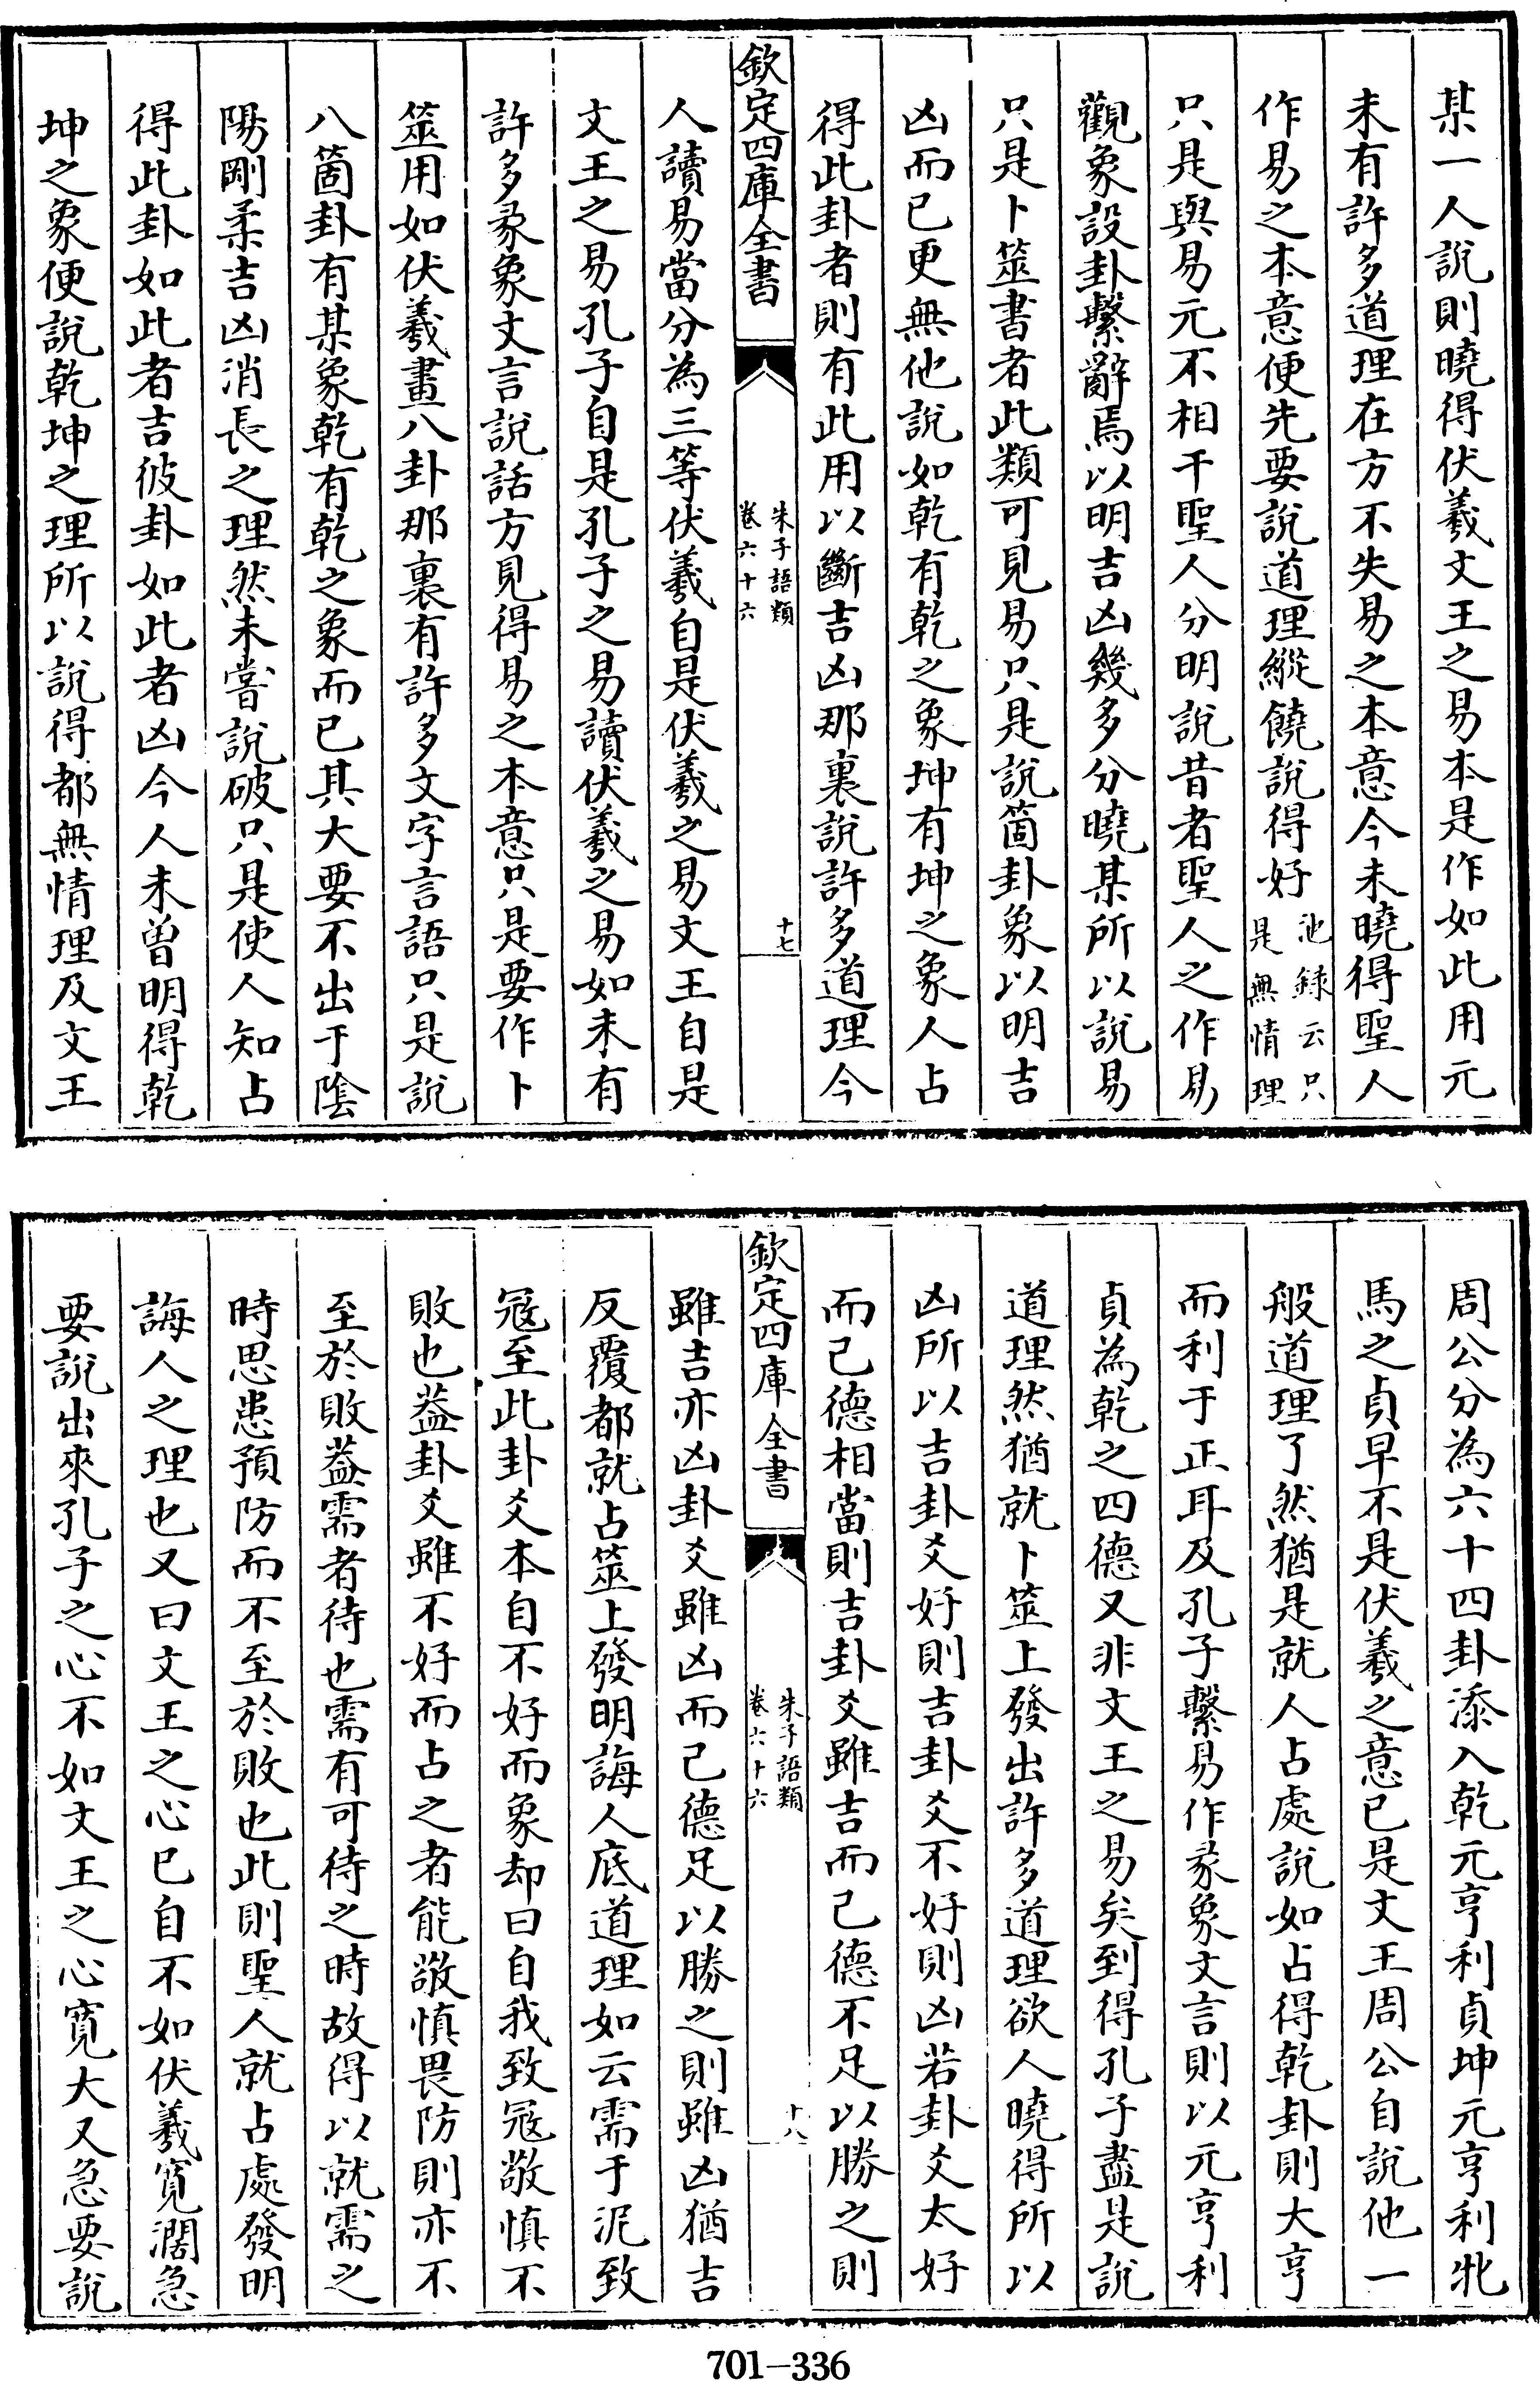 某一人說則曉得伏羲文王之易本是作如此用元
未有許多道理在方不失易之本意今未曉得聖人
作易之本意便先要說道理縱饒說得好池錄云只是無情理
只是與易元不相干聖人分明說昔者聖人之作易
觀象設卦繫辭焉以明吉凶幾多分曉某所以說易
只是卜筮書者此類可見易只是說箇卦象以明吉
凶而已更無他說如乾有乾之象坤有坤之象人占
得此卦者則有此用以斷吉凶那裏說許多道理今
欽定四庫全書
朱子語類
卷六十六
十七
人讀易當分為三等伏羲自是伏羲之易文王自是
文王之易孔子自是孔子之易讀伏羲之易如未有
許多彖象文言說話方見得易之本意只是要作卜
筮用如伏羲畫八卦那裏有許多文字言語只是說
八箇卦有某象乾有乾之象而已其大要不出于陰
陽剛柔吉凶消長之理然未嘗說破只是使人知占
得此卦如此者吉彼卦如此者凶今人未曾明得乾
坤之象便說乾坤之理所以說得都無情理及文王
周公分為六十四卦添入乾元亨利貞坤元亨利牝
馬之貞早不是伏羲之意已是文王周公自說他一
般道理了然猶是就人占處說如占得乾卦則大亨
而利于正耳及孔子繫易作彖象文言則以元亨利
貞為乾之四德又非文王之易矣到得孔子盡是說
道理然猶就卜筮上發出許多道理欲人曉得所以
凶所以吉卦爻好則吉卦爻不好則凶若卦爻太好
而已德相當則吉卦爻雖吉而已德不足以勝之則
欽定四庫全書
朱子語類
卷六十六
十八
雖吉亦凶卦爻雖凶而已德足以勝之則雖凶猶吉
反覆都就占筮上發明誨人底道理如云需于泥致
宼至此卦爻本自不好而象却曰自我致宼敬慎不
敗也葢卦爻雖不好而占之者能敬慎畏防則亦不
至於敗葢需者待也需有可待之時故得以就需之
時思患預防而不至於敗也此則聖人就占處發明
誨人之理也又曰文王之心已自不如伏羲寛濶急
要說出來孔子之心不如文王之心寛大又急要說
701-336